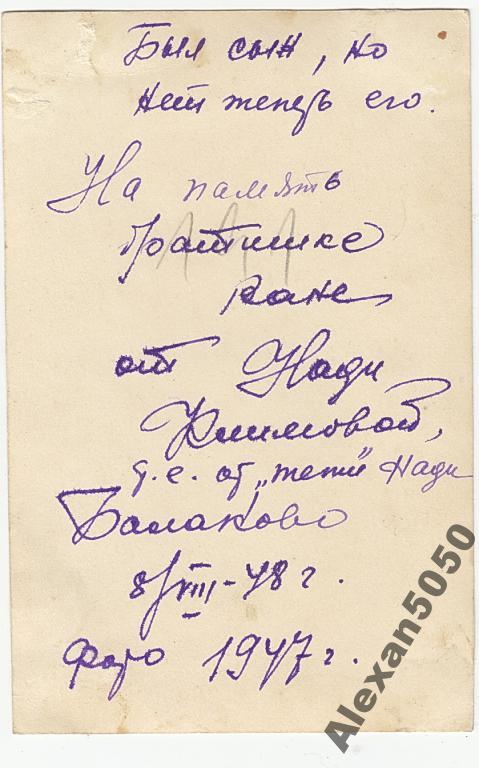 Был сын, но
нет теперь его.
На память
братишке
Ване
от Нади
Климовой,
т.е. от „тети" Нади
Балаково
8/VIII-48 г.
Фото 1947 г.
Alexan5050